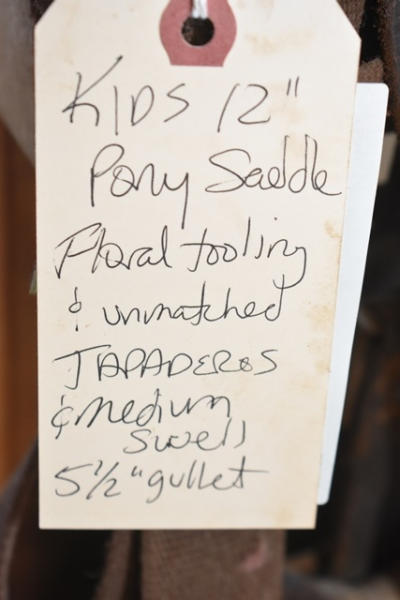 KIDS 12"
Pony Saddle
Floral tooling
& unmatched
TAPADEROS
& medium
swell
5½" gullet